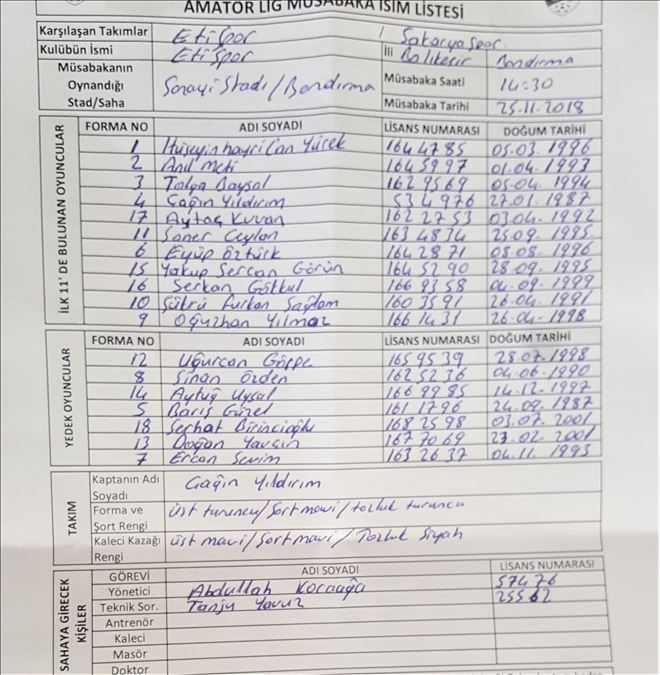 AMATÖR LİG MÜSABAKA İSİM LİSTESİ
Karşılaşan Takımlar Etispor / Sakaryaspor
Kulübün İsmi Etispor İli Balıkesir Bandırma
Müsabakanın Oynandığı Stad/Saha Sanayi Stadı/Bandırma Müsabaka Saati 14:30
Müsabaka Tarihi 25.11.2018
İLK 11' DE BULUNAN OYUNCULAR
FORMA NO ADI SOYADI LİSANS NUMARASI DOĞUM TARİHİ
1 Hüseyin hayri Can Yürek 1644785 05.03.1996
2 Anıl Meti 1645997 01.04.1993
3 Tolga Baysal 1629569 05.04.1994
4 Çağın Yıldırım 534976 27.01.1987
17 Aytaç Kuvan 1622753 03.04.1992
11 Soner Ceylan 1634834 25.09.1995
6 Eyüp Öztürk 1642871 08.08.1996
15 Yakup Sercan Görün 1645290 28.09.1995
16 Serkan Göktul 1669358 04.09.1999
10 Şükrü Furkan Sağlam 1603591 26.04.1991
9 Oğuzhan Yılmaz 1661431 26.04.1998
YEDEK OYUNCULAR
FORMA NO ADI SOYADI LİSANS NUMARASI DOĞUM TARİHİ
12 Uğurcan 1659539 28.07.1998
8 Sinan Özden 1625236 04.06.1990
14 Aytuğ Uysal 1669985 14.12.1997
5 Barış Güzel 1611796 24.09.1987
18 Serhat Birincioğlu 1682598 03.07.2001
13 Doğan Yavgın 1677069 23.02.2001
7 Ercan Sevim 1632637 04.11.1993
TAKIM
Kaptanın Adı Soyadı Çağın Yıldırım
Forma ve Şort Rengi üst turuncu/Şort mavi/tozluk turuncu
Kaleci Kazağı Rengi üst mavi/Şort mavi/Tozluk Siyah
SAHAYA GİRECEK KİŞİLER
GÖREVİ ADI SOYADI LİSANS NUMARASI
Yönetici Abdullah Kocaağa 57476
Teknik Sor. Tanju Yavuz 25562
Antrenör
Kaleci
Masör
Doktor